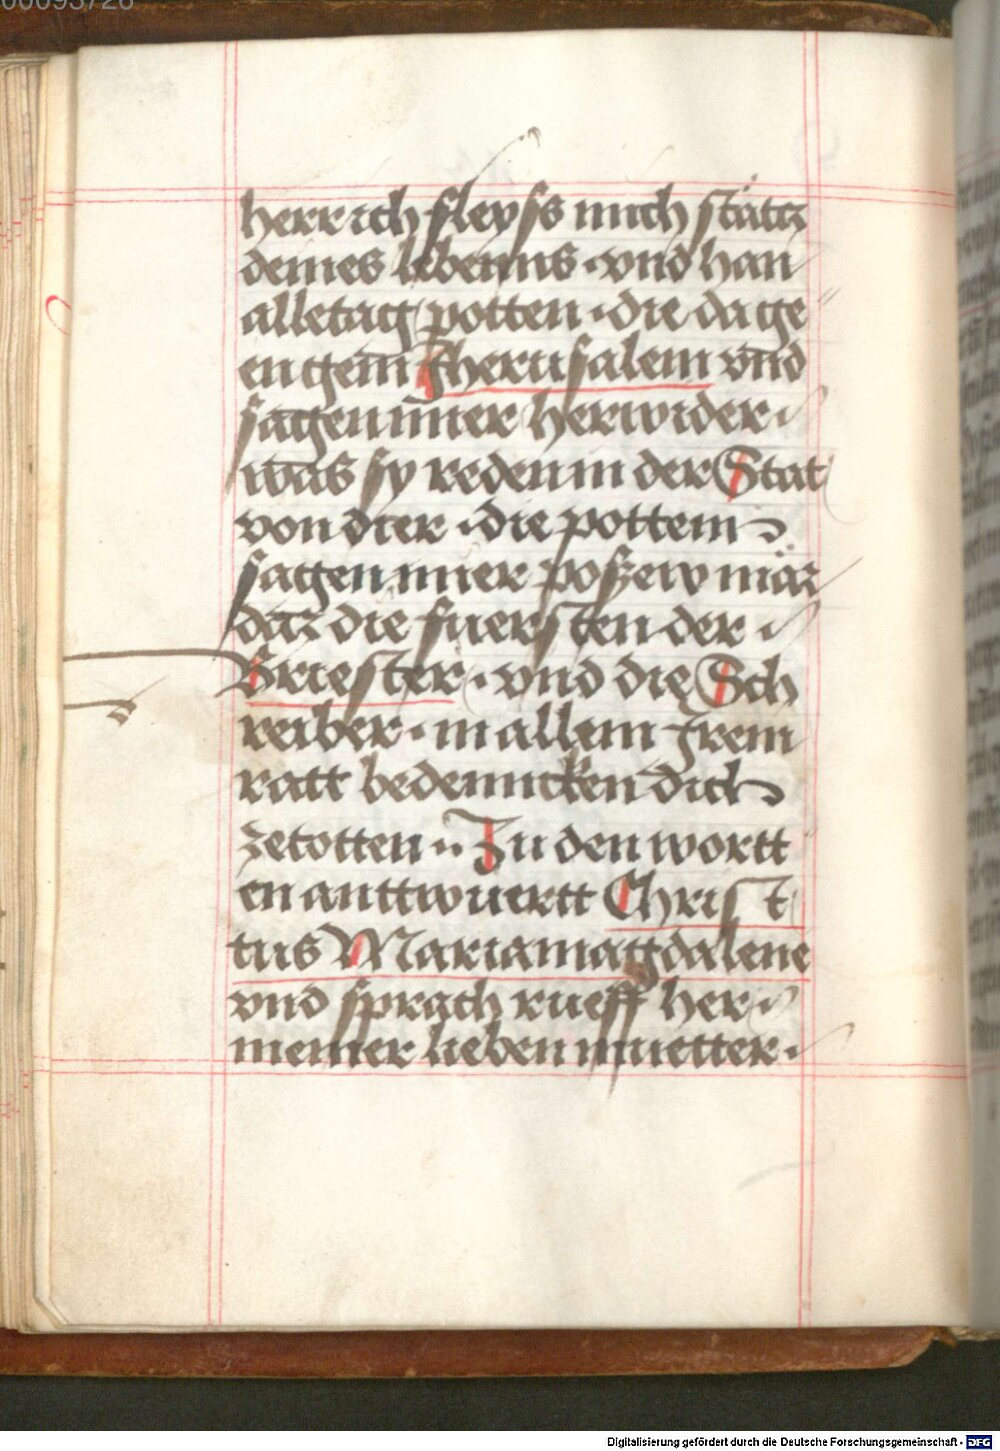 00093726
herr ich fleyss mich stättz
deines lebenns · vnd han
alletag potten · die da ge
en gein Jherusalem vnd
sagen mier herwider ·
was sy reden in der Stat
von dier · die pottem
sagen mier poszew mär
daz die fuersten der
Briester · vnd die Sch
reiber · in allem Irem
ratt bedenncken dich
zetotten · Zu den wortt
en anttwuertt Christ
tus Mariamagdalene
vnd sprach rueff her
meiner lieben muetter ·
Digitalisierung gefördert durch die Deutsche Forschungsgemeinschaft - DFG